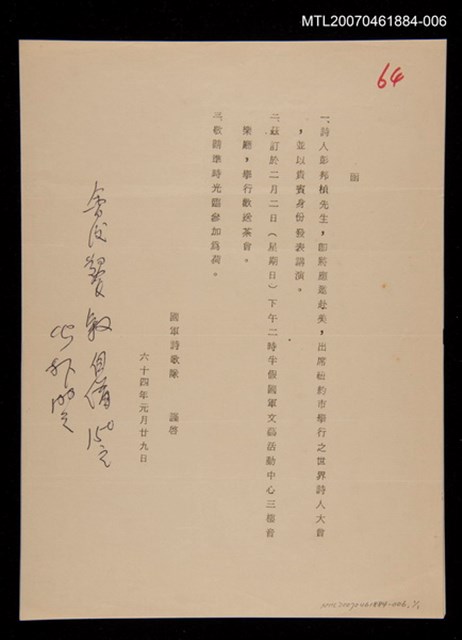 MTL20070461884-006
64
函
一、詩人彭邦楨先生,即將應邀赴美,出席紐約市舉行之世界詩人大會
,並以貴賓身份發表講演。
二、茲訂於二月二日(星期日)下午二時半假國軍文藝活動中心三樓音
樂廳,舉行歡送茶會。
三、敬請準時光臨參加為荷。
國軍詩歌隊 謹啓
六十四年元月廿九日
會後
敏
MTL20070461884-006, 1/1